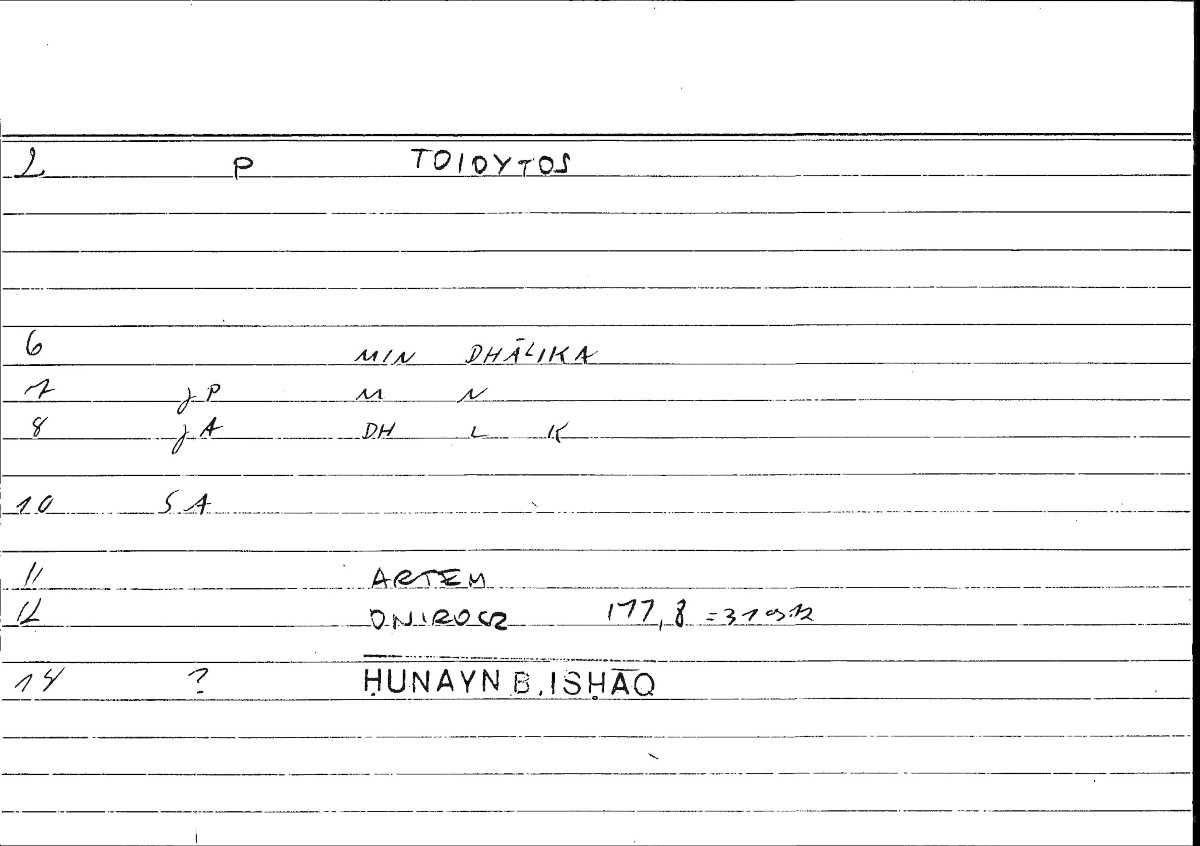 2 P TOIOYTOS
6 MIN DHĀLIKA
7 JP M N
8 JA DH L K
10 SA
11 ARTEM
12 ONIROCR 177,8
14 ? ḤUNAYN B. ISḤĀQ